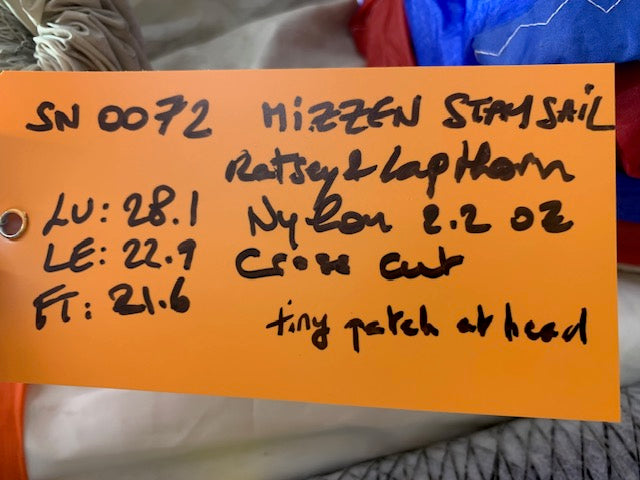 SN 0072 MiZZEN STAYSAiL
Ratsey & Lapthorn
LU: 28.1 Nylon 2.2 oz
LE: 22.9 Cross cut
FT: 21.6
tiny patch at head